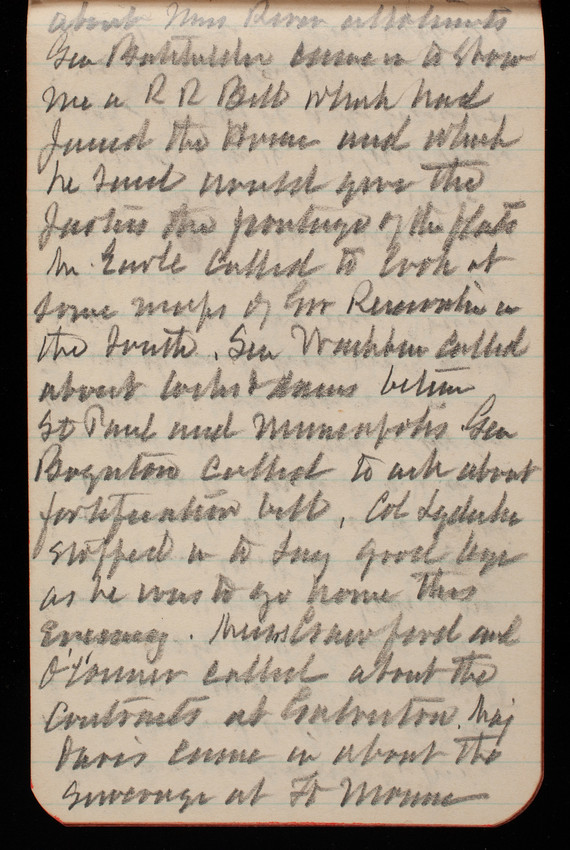 about Miss River allotments
Gen Batchelder came in to show
me a R R Bill which had
passed the House and which
he said would give the
the portage of the flats
Mr. Searle called to look at
some maps of Gov Reservation in
the South. Sen Washburn called
about locks & dams between
St Paul and Minneapolis Gen
Boynton called to ask about
fortification bill, Col Lydecker
stopped in to say good bye
as he was to go home this
Evening. Messrs Crawford and
O'Connor called about the
contracts at Galveston. Maj
Davis came in about the
sewerage at Ft Monroe